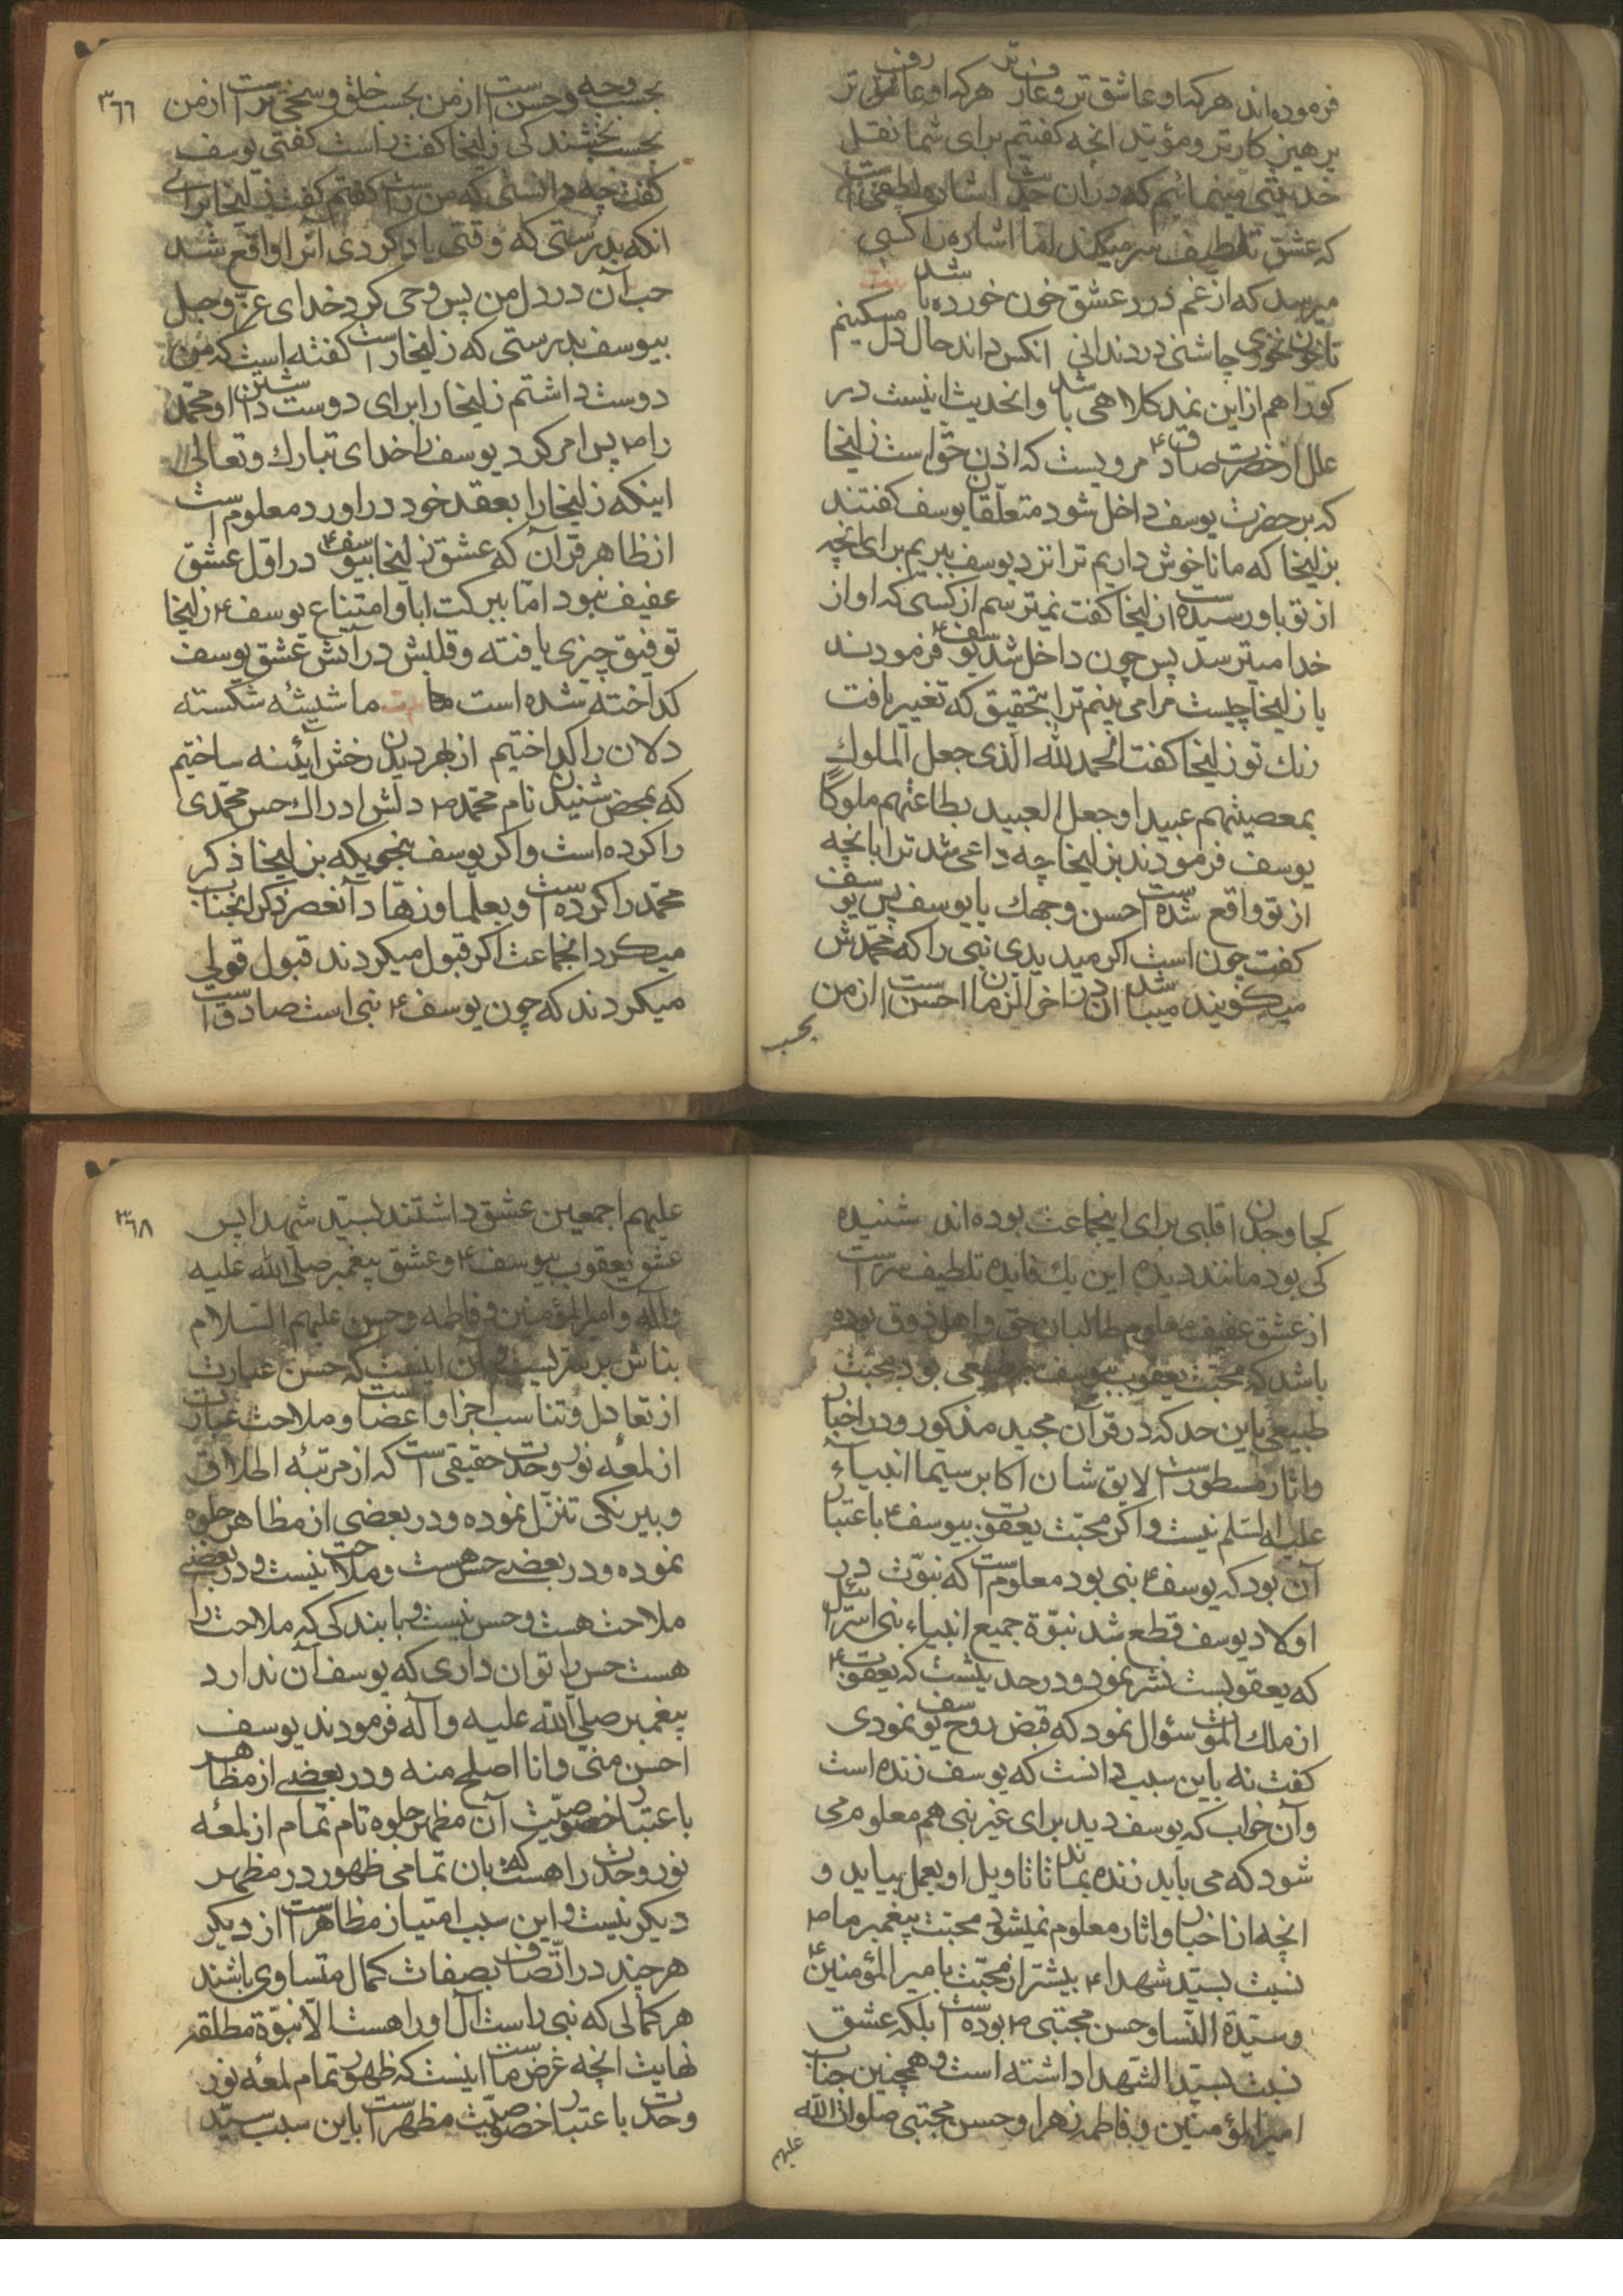 فرموده‌اند هرکه او عاشق‌تر و عارف‌تر هرکه او عاشق‌تر
پرهیزکارتر و مؤید آنچه گفتیم برای شما نقل
حدیثی مینمائیم که در آن حدیث اشاره لطیفی است
که عشق تلطیف سر میکند اما اشاره را کسی
میرسد که از غم درد عشق خون خورده باشد
تا خون نخوری چاشنی درد ندانی آنکس داند حال دل مسکینم
کورا هم ازین نمد کلاهی باشد و آنحدیث اینست در
علل از حضرت صادق ع مرویست که اذن خواست زلیخا
که بر حضرت یوسف داخل شود متعلقان یوسف گفتند
بزلیخا که ما ناخوش داریم ترا نزد یوسف ببریم برای آنچه
از تو باو رسیده است زلیخا گفت نمیترسم از کسی که او از
خدا میترسد پس چون داخل شد یوسف ع فرمودند
یا زلیخا چیست مرا می‌بینم ترا بتحقیق که تغییر یافت
رنک تو زلیخا گفت الحمدلله الذی جعل الملوک
بمعصیتهم عبیدا و جعل العبید بطاعتهم ملوکا
یوسف فرمودند بزلیخا چه داعی شد ترا بآنچه
از تو واقع شده است حسن وجهک یا یوسف پس یوسف
گفت چون است اگر میدیدی نبی را که محمدش
میگویند میباشد آن در آخر الزمان احسن است از من
بحسب
۳۶۶
بحسب وجه و حسن است از من بحسب خلق و سخی‌تر است از من
بحسب بخشندگی زلیخا گفت راست گفتی یوسف
گفت چه دانستی که من راست گفتم گفت زلیخا برای
آنکه بدرستی که وقتی یاد کردی آنرا واقع شد
حب آن در دل من پس وحی کرد خدای عز و جل
بیوسف بدرستی که زلیخا راست گفته است که من
دوست داشتم زلیخا را برای دوست داشتن او محمد
را ص پس امر کرد یوسف را خدای تبارک و تعالی
اینکه زلیخا را بعقد خود در آورد معلوم است
از ظاهر قرآن که عشق زلیخا بیوسف ع در اول عشق
عفیف نبود اما ببرکت ابا و امتناع یوسف ع زلیخا
توفیق چیزی یافته و قلبش در آتش عشق یوسف
گداخته شده است ما شیشه شکسته
دلان را گداختیم از بهر دیدن رخش آئینه ساختیم
که بمحض شنیدن نام محمد ص دلش ادراک حس محمدی
را کرده است و اگر یوسف بنحویکه بزلیخا ذکر
محمد را کرده است و بعلما و زهاد آنعصر ذکر آنجناب
میکرد آنجماعت اگر قبول میکردند قبول قولی
میکردند که چون یوسف ع نبی است صادق است
کجا وجدان قلبی برای اینجماعت بوده‌اند شنیده
کی بود مانند دیده این یک فایده تلطیف سر است
از عشق عفیف معلوم طالبان حق و اهل ذوق بوده
باشد که محبت یعقوب بیوسف نه طبیعی بود محبت
طبیعی باین حد که در قرآن مجید مذکور و در اخبار
و آثار مسطور است لایق شان اکابر سیما انبیاء
علیهم السلم نیست و اگر محبت یعقوب بیوسف ع باعتبار
آن بود که یوسف ع نبی بود معلوم است که نبوت در
اولاد یوسف قطع شد نبوة جمیع انبیاء بنی اسرائیل
که یعقوبست نشر نمود و در حدیثست که یعقوب ع
از ملک الموت سؤال نمود که قبض روح یوسف نمودی
گفت نه باین سبب دانست که یوسف زنده است
و آن خواب که یوسف دید برای غیر نبی هم معلوم می
شود که می باید زنده بماند تا تاویل او بعمل بیاید و
آنچه از اخبار و آثار معلوم نمیشود محبت پیغمبر ما ص
نسبت بسید شهدا ع بیشتر از محبت بامیر المؤمنین ع
و سیدة النسا و حسن مجتبی ع بوده است بلکه عشق
نسبت بسید الشهدا داشته است و همچنین جناب
امیر المؤمنین و فاطمه زهرا و حسن مجتبی صلوات الله
علیهم
۳۶۸
علیهم اجمعین عشق داشتند بسید شهدا پس
عشق یعقوب بیوسف ع و عشق پیغمبر صلی الله علیه
و آله و امیر المؤمنین و فاطمه و حسن علیهم السلام
بناش بر سریست و آن اینست که حسن عبارت
از تعادل و تناسب اجزا و اعضا است و ملاحت عبارت
از لمعه نور وحدت حقیقی است که از مرتبه اطلاق
و بیرنگی تنزل نموده و در بعضی از مظاهر جلوه
نموده و در بعضی حسن هست و ملاحت نیست و در بعضی
ملاحت هست و حسن نیست و با بندگی که ملاحت را
هست حسن را توان داری که یوسف آن ندارد
پیغمبر صلی الله علیه و آله فرمودند یوسف
احسن منی و انا املح منه و در بعضی از مظاهر
باعتبار خصوصیت آن مظهر جلوه تام تمام از لمعه
نور وحدت را هست که بآن تمامی ظهور در مظهر
دیگر نیست و این سبب امتیاز مظاهر است از دیگر
هرچند در اتصاف بصفات کمال متساوی باشند
هر کمالی که نبی راست آل او را هست الا نبوة مطلقه
نهایت آنچه غرض ماست اینست که ظهور تمام لمعه نور
وحدت باعتبار خصوصیت مظهر است باین سبب سید